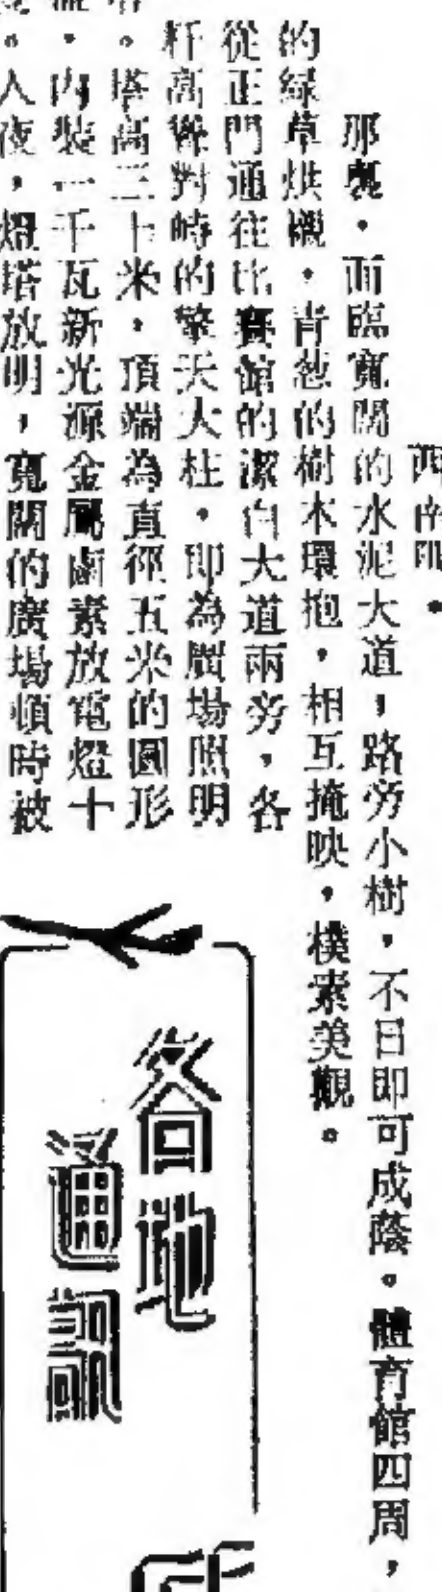 西南隅。
那裏,面臨寬闊的水泥大道,路旁小樹,不日即可成蔭。體育館四周,
的綠草烘襯,青葱的樹木環抱,相互掩映,樸素美觀。
從正門通往比賽館的潔白大道兩旁,各
杆高聳對峙的擎天大柱,即為廣場照明
。塔高三十米,頂端為直徑五米的圓形
,內裝一千瓦新光源金屬鹵素放電燈十
。入夜,燈塔放明,寬闊的廣場頓時被
各地
通訊